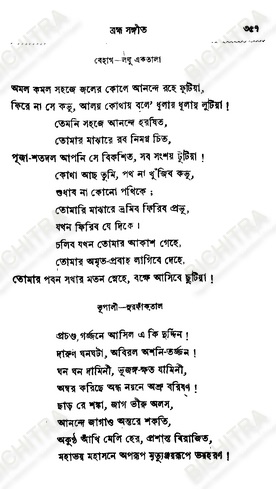 ব্রহ্ম সঙ্গীত ৩৫৭
বেহাগ—লঘু একতালা
অমল কমল সহজে জলের কোলে আনন্দে রহে ফুটিয়া,
ফিরে না সে কভু, আলয় কোথায় বলে' ধূলায় ধূলায় লুটিয়া!
তেমনি সহজে আনন্দে হরষিত,
তোমার মাঝারে রব নিমগ্ন চিত,
পূজা-শতদল আপনি সে বিকশিত, সব সংশয় টুটিয়া!
কোথা আছ তুমি, পথ না খুঁজিব কভু,
শুধাব না কোনো পথিকে;
তোমারি মাঝারে ভ্রমিব ফিরিব প্রভু,
যখন ফিরিব যে দিকে।
চলিব যখন তোমার আকাশ গেহে,
তোমার অমৃত-প্রবাহ লাগিবে দেহে,
তোমার পবন সখার মতন স্নেহে, বক্ষে আসিবে ছুটিয়া!
ভূপালী—সুরফাঁকতাল
প্রচণ্ড গর্জ্জনে আসিল এ কি দুর্দ্দিন!
দারুণ ঘনঘটা, অবিরল অশনি-তর্জ্জন!
ঘন ঘন দামিনী, ভুজঙ্গ-ক্ষত যামিনী,
অম্বর করিছে অন্ধ নয়নে অশ্রু বরিষণ!
ছাড় রে শঙ্কা, জাগ ভীরু অলস,
আনন্দে জাগাও অন্তরে শকতি,
অকুণ্ঠ আঁখি মেলি হের, প্রশান্ত বিরাজিত,
মহাভয় মহাসনে অপরূপ মৃত্যুঞ্জয়রূপে ভয়হরণ!
BICHITRA